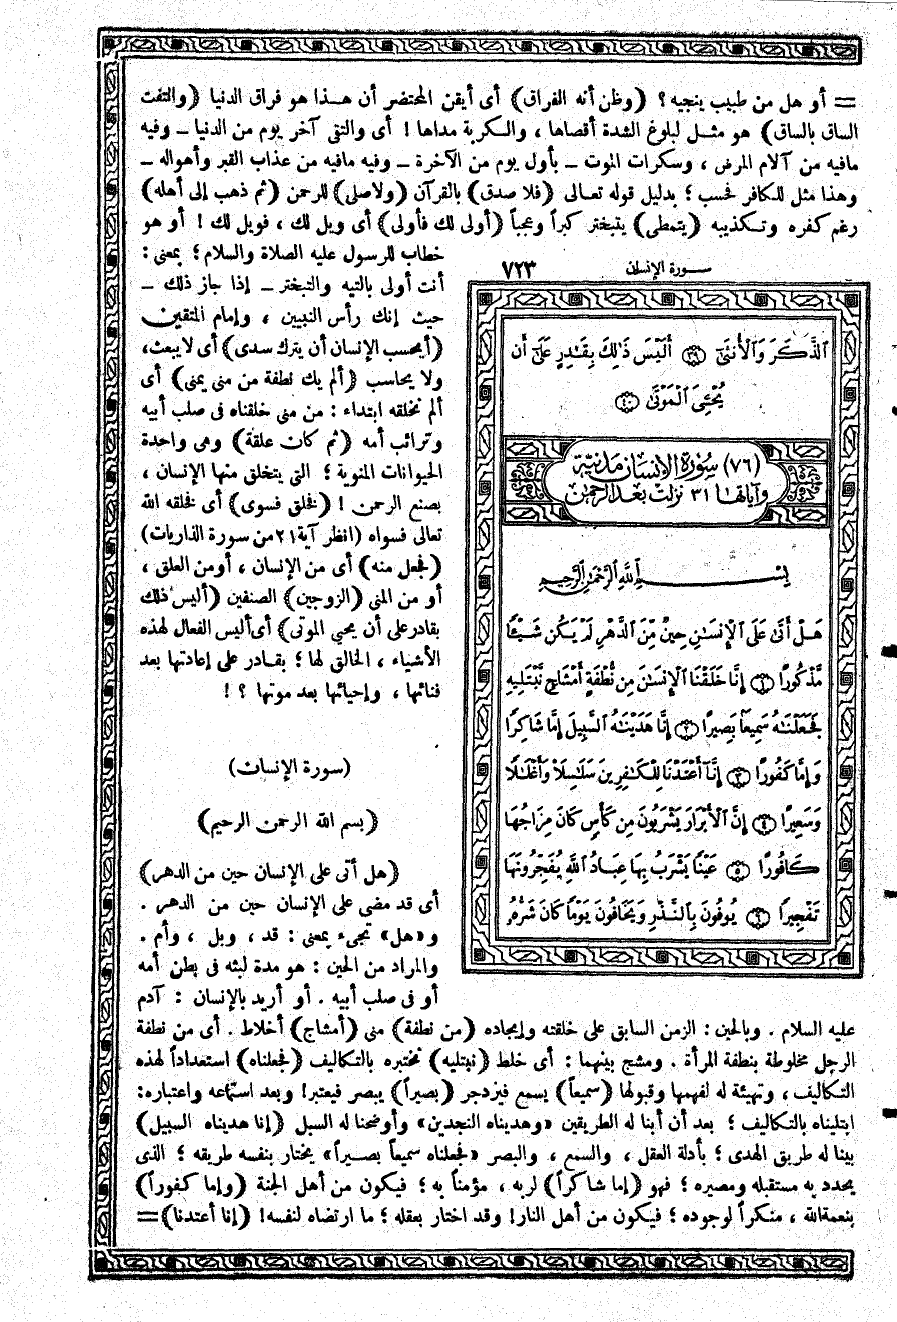 = أو هل من طبيب ينجيه ؟ (وظن أنه الفراق) أى أيقن المحتضر أن هـذا هو فراق الدنيا (والتفت
الساق بالساق) هو مثـل لبلوغ الشدة أقصاها ، والـكربة مداها ! أى والتقى آخر يوم من الدنيا ــ وفيه
مافيه من آلام المرض ، وسكرات الموت ــ بأول يوم من الآخرة ــ وفيه مافيه من عذاب القبر وأهواله ــ
وهذا مثل للكافر فحسب ؛ بدليل قوله تعـالى (فلا صدق) بالقرآن (ولاصلى) للرحمن (ثم ذهب إلى أهله)
رغم كفره وتـكذيبه (يتمطى) يتبختر كبراً وعجباً (أولى لك فأولى) أى ويل لك ، فويل لك ! أو هو
خطاب للرسول عليه الصلاة والسلام ؛ بمعنى :
أنت أولى بالتيه والتبختر ــ إذا جاز ذلك ــ
حيث إنك رأس النبيين ، وإمام المتقين
(أيحسب الإنسان أن يترك سدى) أى لا يبعث،
ولا يحاسب (ألم يك نطفة من منى يمنى) أى
ألم نخلقه ابتداء : من منى خلقناه فى صلب أبيه
وترائب أمه (ثم كان علقة) وهى واحدة
الحيوانات المنوية ؛ التى يتخلق منها الإنسان ،
بصنع الرحمن ! (فخلق فسوى) أى فخلقه الله
تعالى فسواه (انظر آية ٢١ من سورة الذاريات)
(فجعل منه) أى من الإنسان ، أومن العلق ،
أو من المنى (الزوجين) الصنفين (أليس ذلك
بقادرعلى أن يحيى الموتى) أى أليس الفعال لهذه
الأشياء ، الخالق لها ؛ بقـادر على إعادتها بعد
فنائها ، وإحيائها بعد موتها ؟ !
سـورة الإنسان ٧٢٣
ٱلذَّكَرَ وَٱلْأُنثَىٰٓ ٣٩ أَلَيْسَ ذَٰلِكَ بِقَٰدِرٍ عَلَىٰٓ أَن
يُحْـِۧىَ ٱلْمَوْتَىٰ ٤٠
(٧٦) سُورَةُ الإنسَانِ مَدنِيَّة
وَآيَاتُهَا ٣١ نزَلَتْ بَعْدَ الرَّحْمٰن
بِسْـــمِ اللَّهِ الرَّحْمَٰنِ الرَّحِيمِ
هَلْ أَتَىٰ عَلَى ٱلْإِنسَٰنِ حِينٌ مِّنَ ٱلدَّهْرِ لَمْ يَكُن شَيْـًٔا
مَّذْكُورًا ١ إِنَّا خَلَقْنَا ٱلْإِنسَٰنَ مِن نُّطْفَةٍ أَمْشَاجٍ نَّبْتَلِيهِ
فَجَعَلْنَٰهُ سَمِيعًۢا بَصِيرًا ٢ إِنَّا هَدَيْنَٰهُ ٱلسَّبِيلَ إِمَّا شَاكِرًا
وَإِمَّا كَفُورًا ٣ إِنَّآ أَعْتَدْنَا لِلْكَٰفِرِينَ سَلَٰسِلَا۟ وَأَغْلَٰلًا
وَسَعِيرًا ٤ إِنَّ ٱلْأَبْرَارَ يَشْرَبُونَ مِن كَأْسٍ كَانَ مِزَاجُهَا
كَافُورًا ٥ عَيْنًا يَشْرَبُ بِهَا عِبَادُ ٱللَّهِ يُفَجِّرُونَهَا
تَفْجِيرًا ٦ يُوفُونَ بِٱلنَّذْرِ وَيَخَافُونَ يَوْمًا كَانَ شَرُّهُۥ
(سورة الإنسان)
(بسم الله الرحمن الرحيم)
(هل أتى على الإنسان حين من الدهر)
أى قد مضى على الإنسان حين من الدهر .
و«هل» تجىء بمعنى : قد ، وبل ، وأم .
والمراد من الحين : هو مدة لبثه فى بطن أمه
أو فى صلب أبيه . أو أريد بالإنسان : آدم
عليه السلام . وبالحين : الزمن السابق على خلقته وإيجاده (من نطفة) منى (أمشاج) أخلاط . أى من نطفة
الرجل مخلوطة بنطفة المرأة . ومشج بينهما : أى خلط (نبتليه) نختبره بالتكاليف (فجعلناه) استعداداً لهذه
التكاليف ، وتهيئة له لفهمها وقبولها (سميعاً) يسمع فيزدجر (بصيراً) يبصر فيعتبر! وبعد استماعه واعتباره:
ابتليناه بالتـكاليف ؛ بعد أن أبنا له الطريقين «وهديناه النجدين» وأوضحنا له السبل (إنا هديناه السبيل)
بينا له طريق الهدى ؛ بأدلة العقل ، والسمع ، والبصر «فجعلناه سميعاً بصـيراً» يختار بنفسه طريقه ؛ الذى
يحدد به مستقبله ومصيره ؛ فهو (إما شاكراً) لربه ، مؤمناً به ؛ فيكون من أهل الجنة (وإما كفوراً)
بنعمة الله ، منكراً لوجوده ؛ فيكون من أهل النار! وقد اختار بعقله ؛ ما ارتضاه لنفسه! (إنا أعتدنا)=